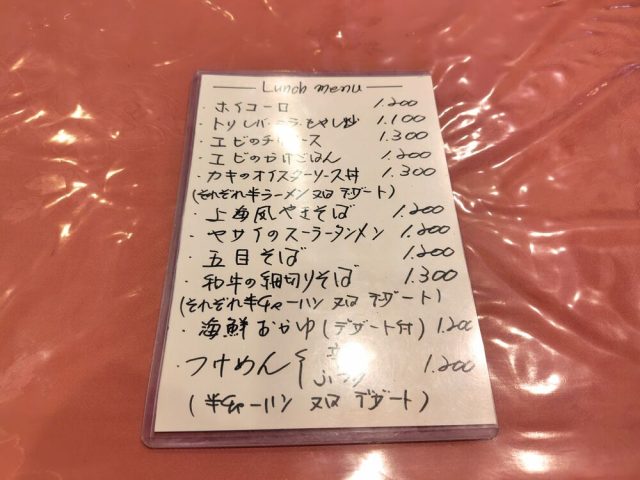 Lunch menu
・ホイコーロ 1.200
・トリレバニラもやし炒 1.100
・エビのチリソース 1.300
・エビのかけごはん 1.200
・カキのオイスターソース丼 1.300
(それぞれ半ラーメン又はデザート)
・上海風やきそば 1.200
・ヤサイのスーラータンメン 1.200
・五目そば 1.200
・和牛の細切りそば 1.300
(それぞれ半チャーハン又はデザート)
・海鮮おかゆ(デザート付) 1.200
・つけめん 1.200
(半チャーハン又はデザート)